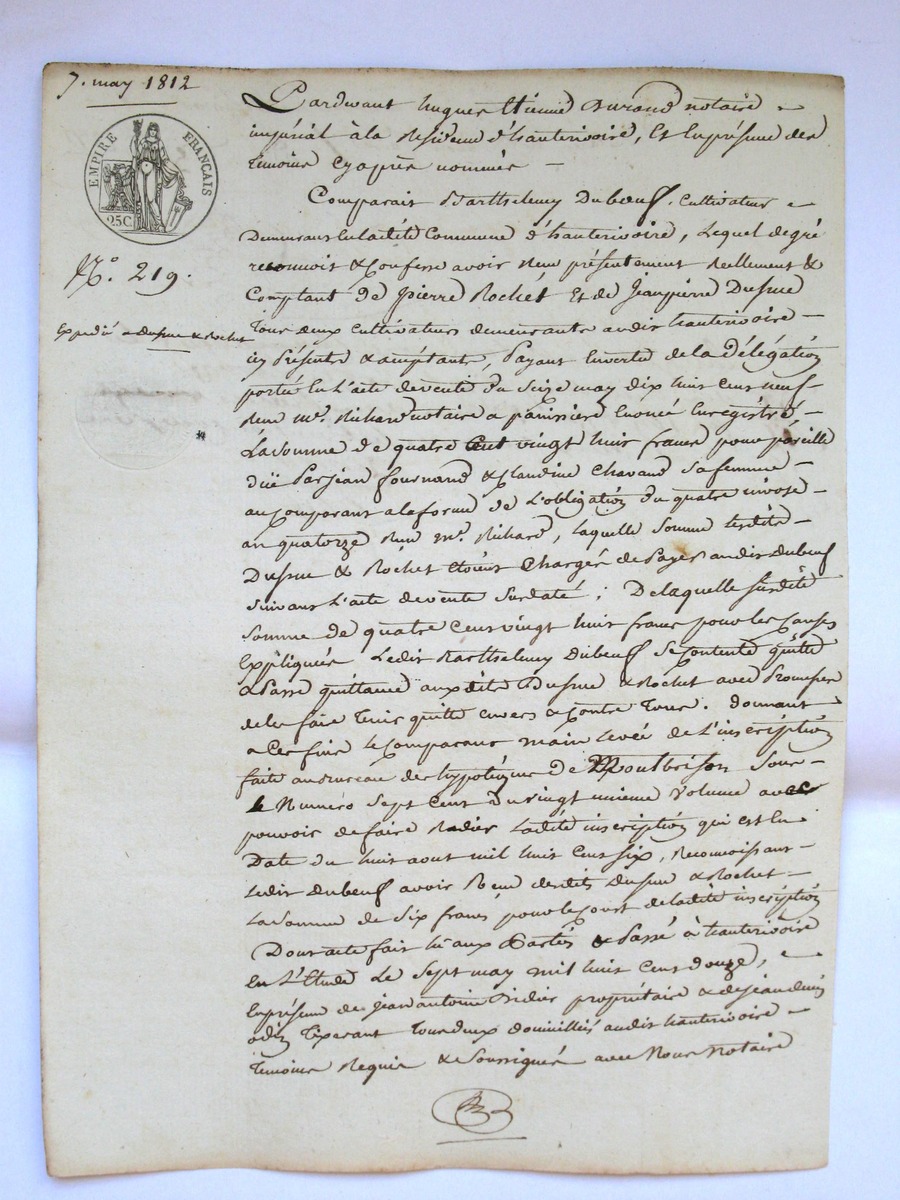 7. may 1812
EMPIRE FRANÇAIS
25C
N.º 219.
Expédié a Dusme & Rochet
Pardevant hugues Etienne Durand notaire
impérial à la Residence d'hauterivoire, Et En présence des
temoins cy après nommés
Comparait Barthelemy Dubœuf, Cultivateur
Demeurant En ladite Commune d'hauterivoire, Lequel de gré
reconnoit & Confesse avoir Reçu présentement Réellement &
Comptant de pierre Rochet Et de Jeanpierre
Tous deux cultivateurs demeurants audit hauterivoire
icy Présents & acceptant, payant En vertu de la Délégation
portée En l'acte de vente du Seize may dix huit cent neuf
Reçu m.e Richard notaire a panissiere Enregistré
La Somme de quatre Cent vingt huit francs pour pareille
düe Par jean fournand & Claudine Chavand Sa femme
au Comparant a la forme de L'obligation du quatre nivose
an quatorze Reçu m.e Richard, Laquelle Somme lesdits
& Rochet Etoient Chargés de Payer audit Dubœuf
Suivant L'acte de vente Surdaté ; De laquelle Susdite
Somme de quatre Cent vingt huit francs pour les Causes
Expliquées Ledit Barthelemy Dubœuf Se Contente quitte
& Passe quittance auxdits & Rochet avec Promesse
de les faire Tenir quitte Envers & Contre Tous. donnant
a Ces fins le Comparant main Levée de L'inscription
faite au Bureau des hypoteques de Montbrison Sous
le Numéro Sept Cent vingt unieme Volume avec
pouvoir de faire Radier Ladite inscription qui est En
Date du huit aout mil huit Cent Six, Reconnoissant
Ledit Dubœuf avoir Reçu desdits & Rochet
La Somme de Six francs pour le Cout de ladite inscription
Dont acte fait lu aux Parties & Passé à hauterivoire
En L'Etude Le Sept may mil huit Cent Douze,
En présence de Jean antoine propriétaire & de Jean
Tixerant Tous deux domiciliés audit hauterivoire
Temoins Requis & Soussignés avec Nous Notaire